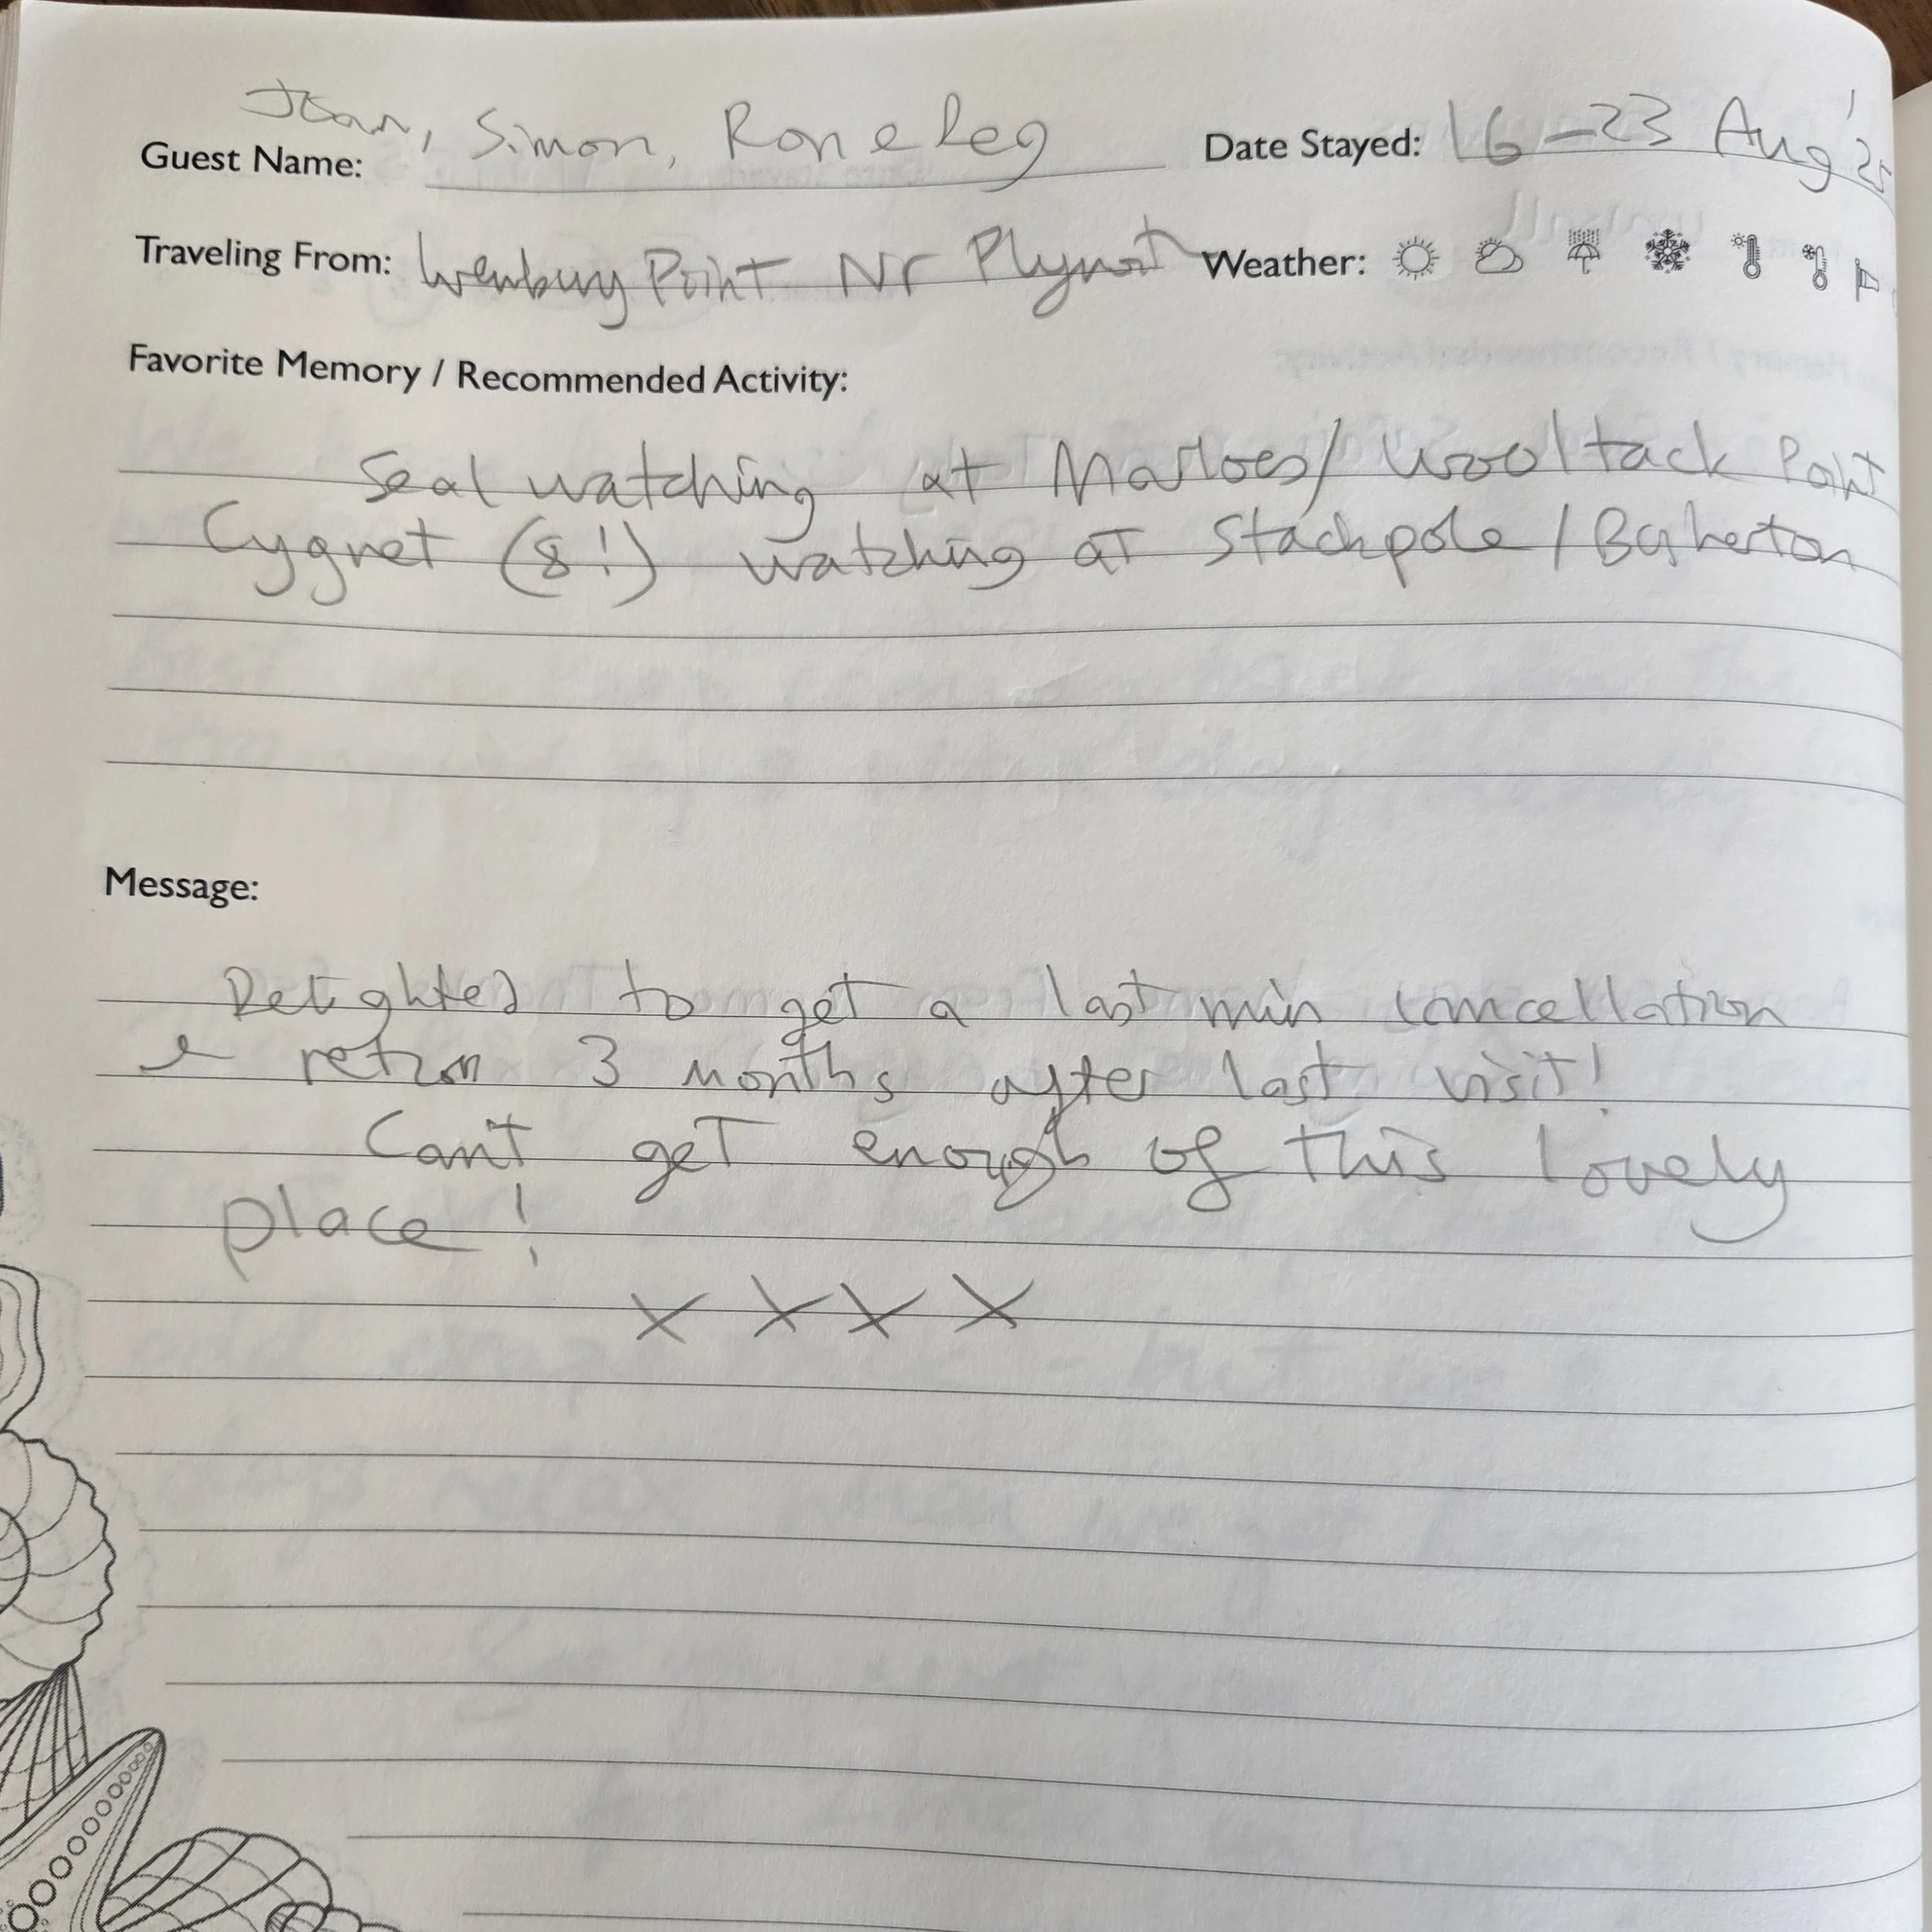 Joan, Simon, Ron & Peg
Guest Name:
Date Stayed: 16-23 Aug '25
Traveling From: Wembury Point Nr Plymouth
Weather:
Favorite Memory / Recommended Activity:
Seal watching at Marloes/ Wooltack Point
Cygnet (8!) watching at Stackpole / Bosherston
Message:
Delighted to get a last min cancellation
& return 3 months after last visit!
Can't get enough of this lovely
place!
x x x x